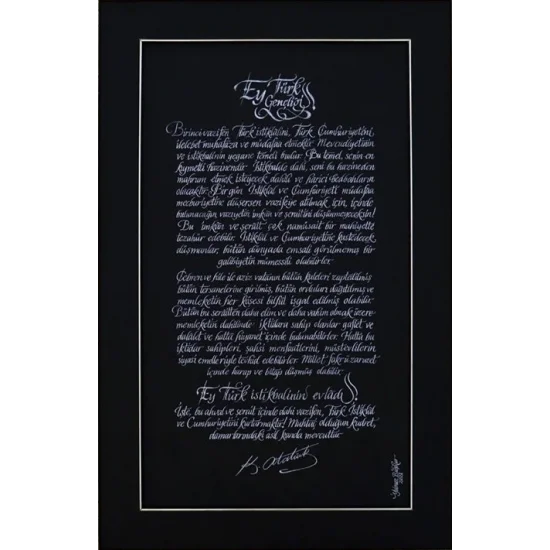 Ey Türk
Gençliği!
Birinci vazifen, Türk istiklâlini, Türk Cumhuriyetini,
ilelebet muhafaza ve müdafaa etmektir. Mevcudiyetinin
ve istikbalinin yegane temeli budur. Bu temel, senin en
kıymetli hazinendir. İstikbalde dahi, seni bu hazineden
mahrum etmek isteyecek dahili ve harici bedhahların
olacaktır. Bir gün, İstiklâl ve Cumhuriyeti müdafaa
mecburiyetine düşersen, vazifeye atılmak için, içinde
bulunacağın vaziyetin imkân ve şeraitini düşünmeyeceksin!
Bu imkân ve şerait, çok namüsait bir mahiyette
tezahür edebilir. İstiklâl ve Cumhuriyetine kastedecek
düşmanlar, bütün dünyada emsali görülmemiş bir
galibiyetin mümessili olabilirler.
Cebren ve hile ile aziz vatanın bütün kaleleri zaptedilmiş
bütün tersanelerine girilmiş, bütün orduları dağıtılmış ve
memleketin her köşesi bilfiil işgal edilmiş olabilir.
Bütün bu şeraitten daha elim ve daha vahim olmak üzere
memleketin dahilinde iktidara sahip olanlar gaflet ve
dalâlet ve hatta hıyanet içinde bulunabilirler. Hatta bu
iktidar sahipleri, şahsi menfaatlerini, müstevlilerin
siyasi emelleriyle tevhid edebilirler. Millet, fakrü zaruret
içinde harap ve bitap düşmüş olabilir.
Ey Türk istikbalinin evladı!
İşte, bu ahval ve şerait içinde dahi vazifen, Türk İstiklâl
ve Cumhuriyetini kurtarmaktır! Muhtaç olduğun kudret,
damarlarındaki asil kanda mevcuttur.
K. Atatürk